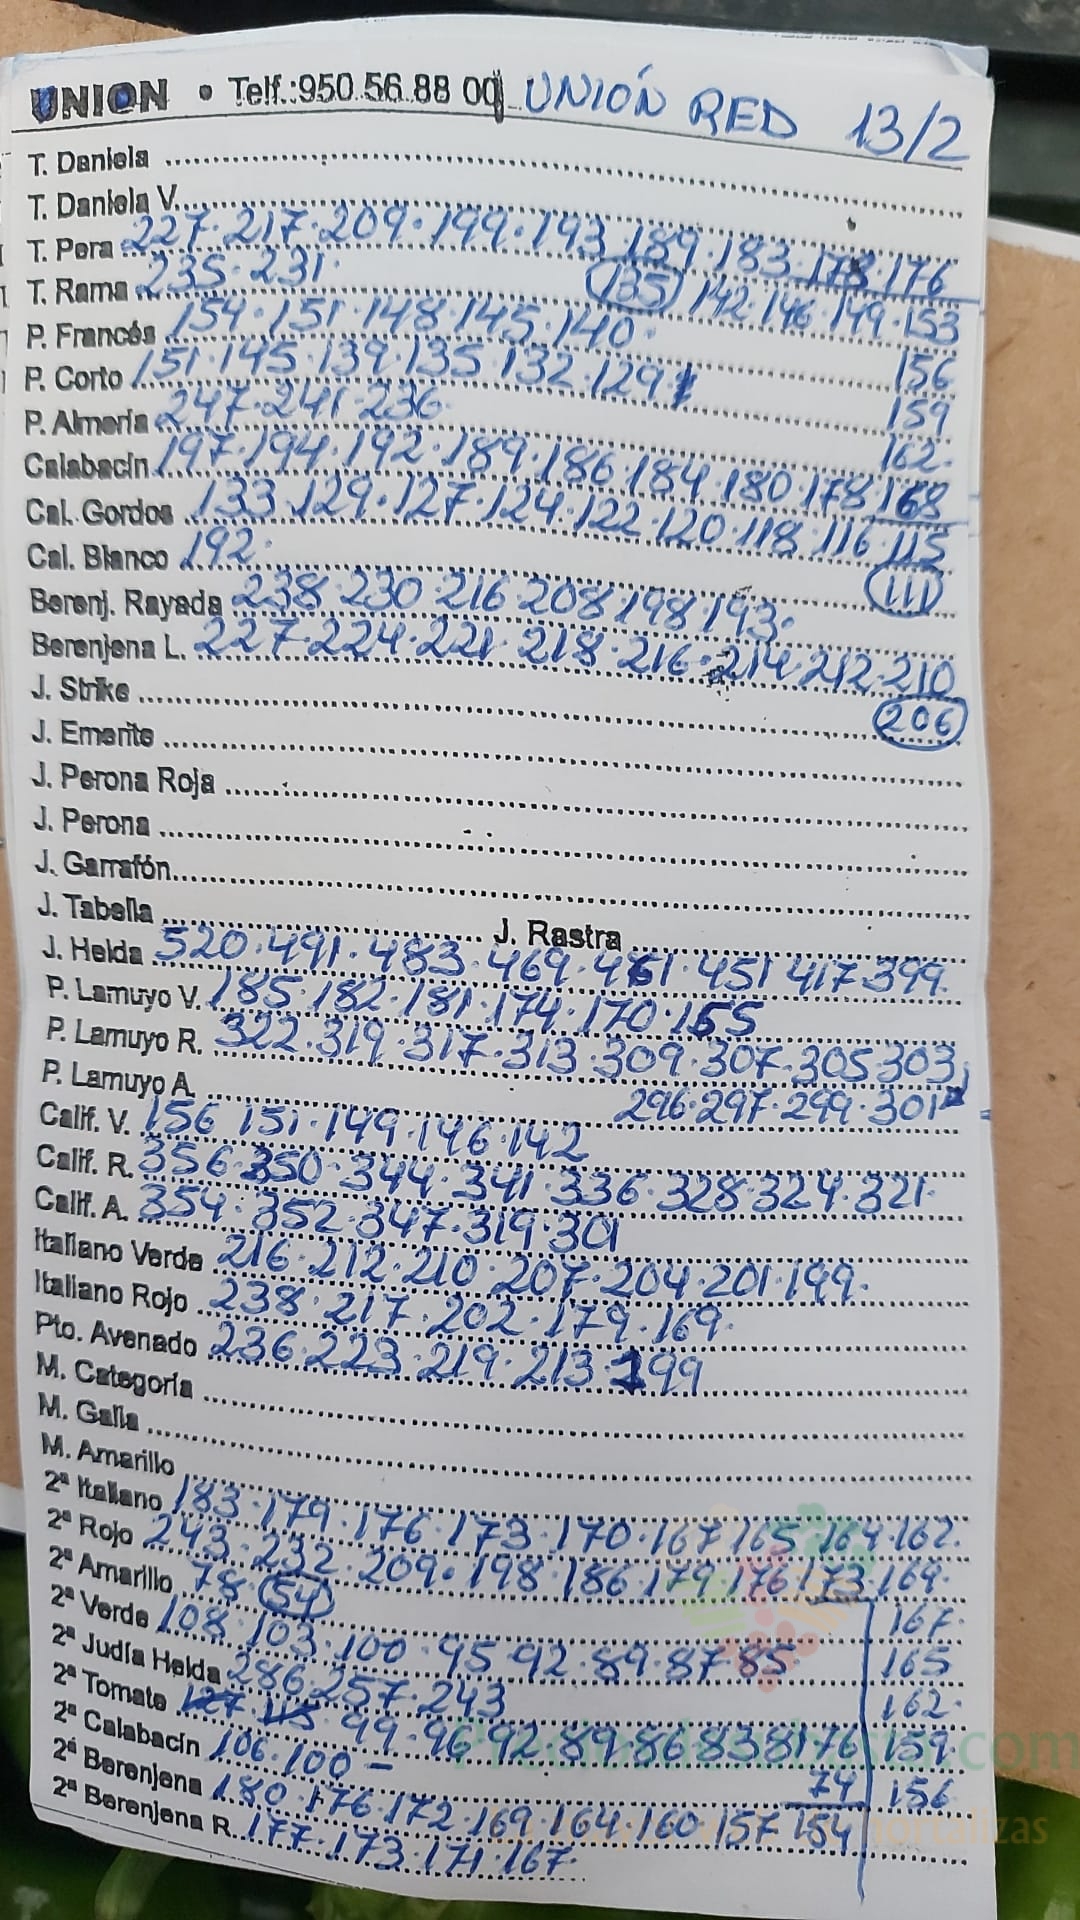 UNION • Telf.:950.56.88 00 UNIÓN RED 13/2
T. Daniela
T. Daniela V.
T. Pera 227·217·209·199·193·189·183·178·176
T. Rama 235·231· (135) 142·146·149·153
P. Francés 154·151·148·145·140· 156
P. Corto 151·145·139·135·132·129 159
P. Almería 247·241·236 162·
Calabacín 197·194·192·189·186·184·180·178·168
Cal. Gordos 133·129·127·124·122·120·118·116·115
Cal. Blanco 192· (111)
Berenj. Rayada 238·230·216·208·198·193·
Berenjena L. 227·224·221·218·216·214·212·210
J. Strike (206)
J. Emerite
J. Perona Roja
J. Perona
J. Garrafón
J. Tabella J. Rastra
J. Helda 520·491·483·469·461·451·417·399·
P. Lamuyo V. 185·182·181·174·170·155
P. Lamuyo R. 322·319·317·313·309·307·305·303
P. Lamuyo A. 296·297·299·301
Calif. V. 156·151·149·146·142
Calif. R. 356·350·344·341·336·328·324·321·
Calif. A. 354·352·347·319·301
Italiano Verde 216·212·210·207·204·201·199·
Italiano Rojo 238·217·202·179·169·
Pto. Avenado 236·223·219·213·199
M. Categoría
M. Galia
M. Amarillo
2ª Italiano 183·179·176·173·170·167·165·164·162·
2ª Rojo 243·232·209·198·186·179·176·173·169·
2ª Amarillo 78·(54) 167·
2ª Verde 108·103·100·95·92·89·87·85 165
2ª Judía Helda 286·257·243 162·
2ª Tomate 127 115 99·96·92·89·86·83·81·76 159
2ª Calabacín 106·100 – 74 156
2ª Berenjena 180·176·172·169·164·160·157 154
2ª Berenjena R. 177·173·171·167·